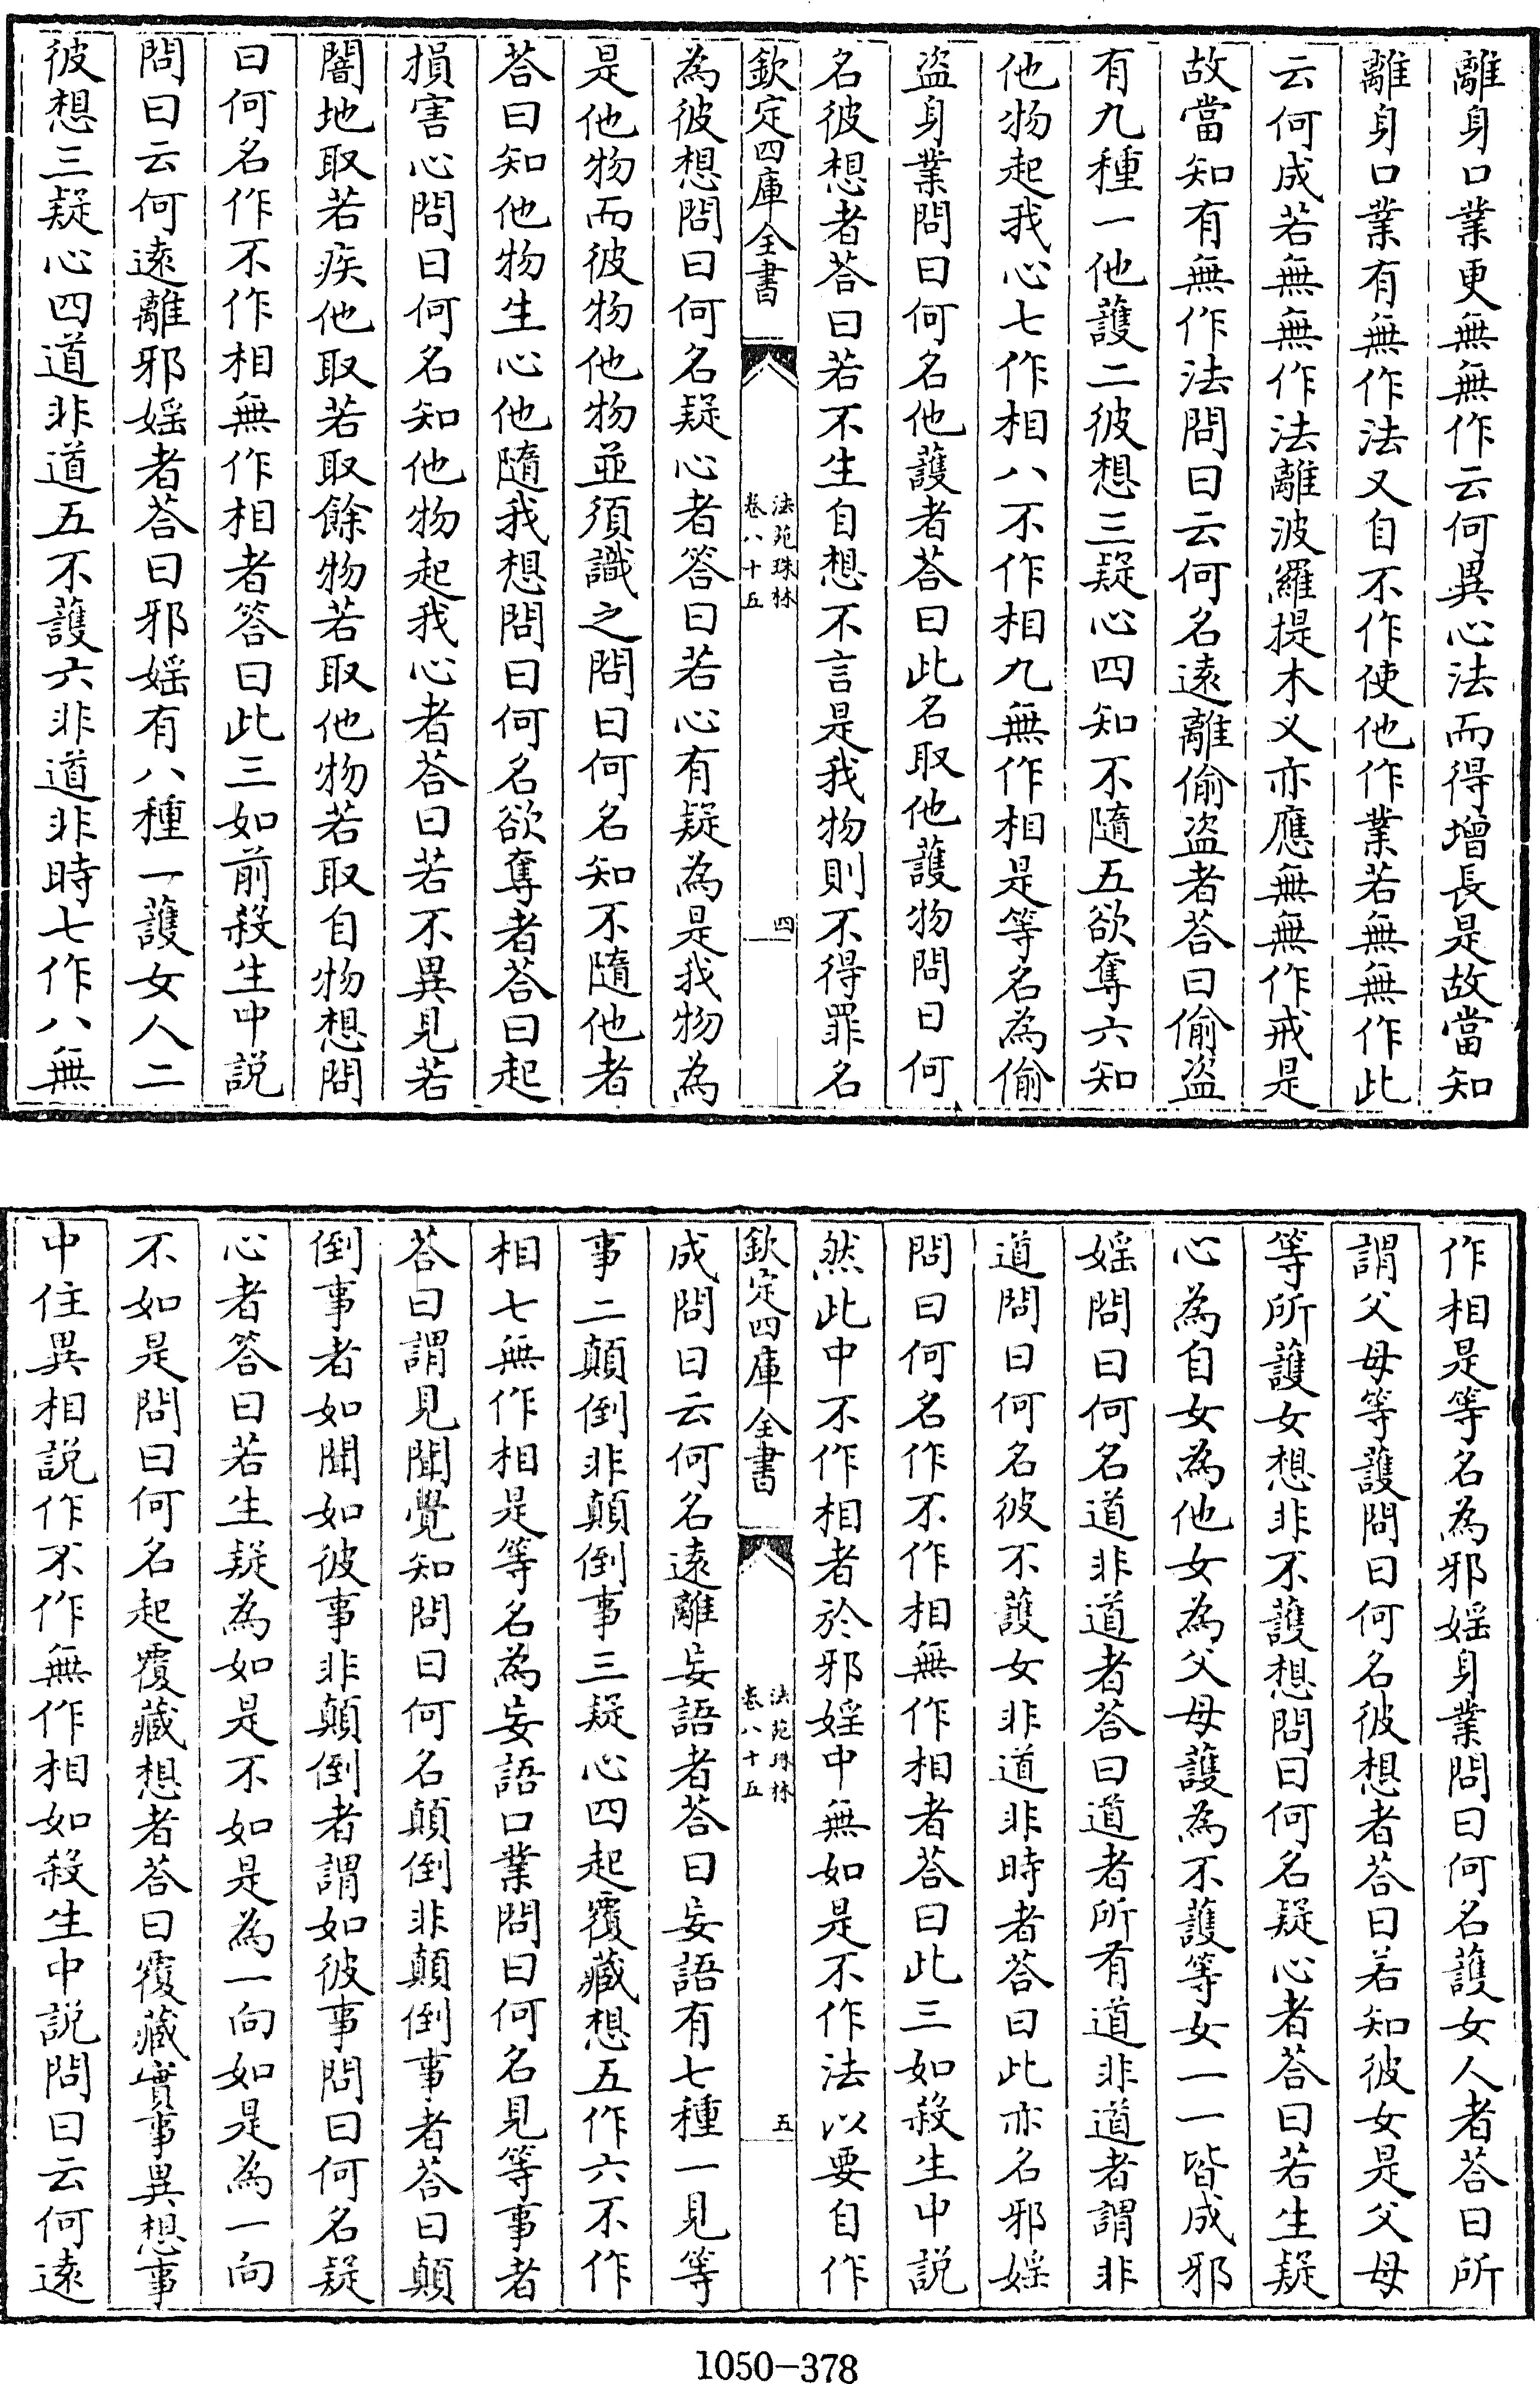 離身口業更無無作云何異心法而得增長是故當知
離身口業有無作法又自不作使他作業若無無作此
云何成若無無作法離波羅提木义亦應無無作戒是
故當知有無作法問曰云何名遠離偷盗者荅曰偷盗
有九種一他䕶二彼想三疑心四知不隨五欲奪六知
他物起我心七作相八不作相九無作相是等名為偷
盗身業問曰何名他䕶者荅曰此名取他䕶物問曰何
名彼想者荅曰若不生自想不言是我物則不得罪名
欽定四庫全書
法苑珠林
卷八十五
四
為彼想問曰何名疑心者答曰若心有疑為是我物為
是他物而彼物他物並須識之問曰何名知不隨他者
荅曰知他物生心他隨我想問曰何名欲奪者荅曰起
損害心問曰何名知他物起我心者荅曰若不異見若
闇地取若疾他取若取餘物若取他物若取自物想問
曰何名作不作相無作相者答曰此三如前殺生中説
問曰云何遠離邪婬者荅曰邪婬有八種一䕶女人二
彼想三疑心四道非道五不䕶六非道非時七作八無
作相是等名為邪婬身業問曰何名䕶女人者荅曰所
謂父母等䕶問曰何名彼想者荅曰若知彼女是父母
等所䕶女想非不䕶想問曰何名疑心者荅曰若生疑
心為自女為他女為父母䕶為不䕶等女一一皆成邪
婬問曰何名道非道者荅曰道者所有道非道者謂非
道問曰何名彼不䕶女非道非時者荅曰此亦名邪婬
問曰何名作不作相無作相者荅曰此三如殺生中説
然此中不作相者於邪婬中無如是不作法以要自作
欽定四庫全書
法苑珠林
卷八十五
五
成問曰云何名遠離妄語者荅曰妄語有七種一見等
事二顛倒非顛倒事三疑心四起覆藏想五作六不作
相七無作相是等名為妄語口業問曰何名見等事者
荅曰謂見聞覺知問曰何名顛倒非顛倒事者荅曰顛
倒事者如聞如彼事非顛倒者謂如彼事問曰何名疑
心者答曰若生疑為如是不如是為一向如是為一向
不如是問曰何名起覆藏想者荅曰覆藏實事異想事
中住異相説作不作無作相如殺生中説問曰云何遠
1050-378